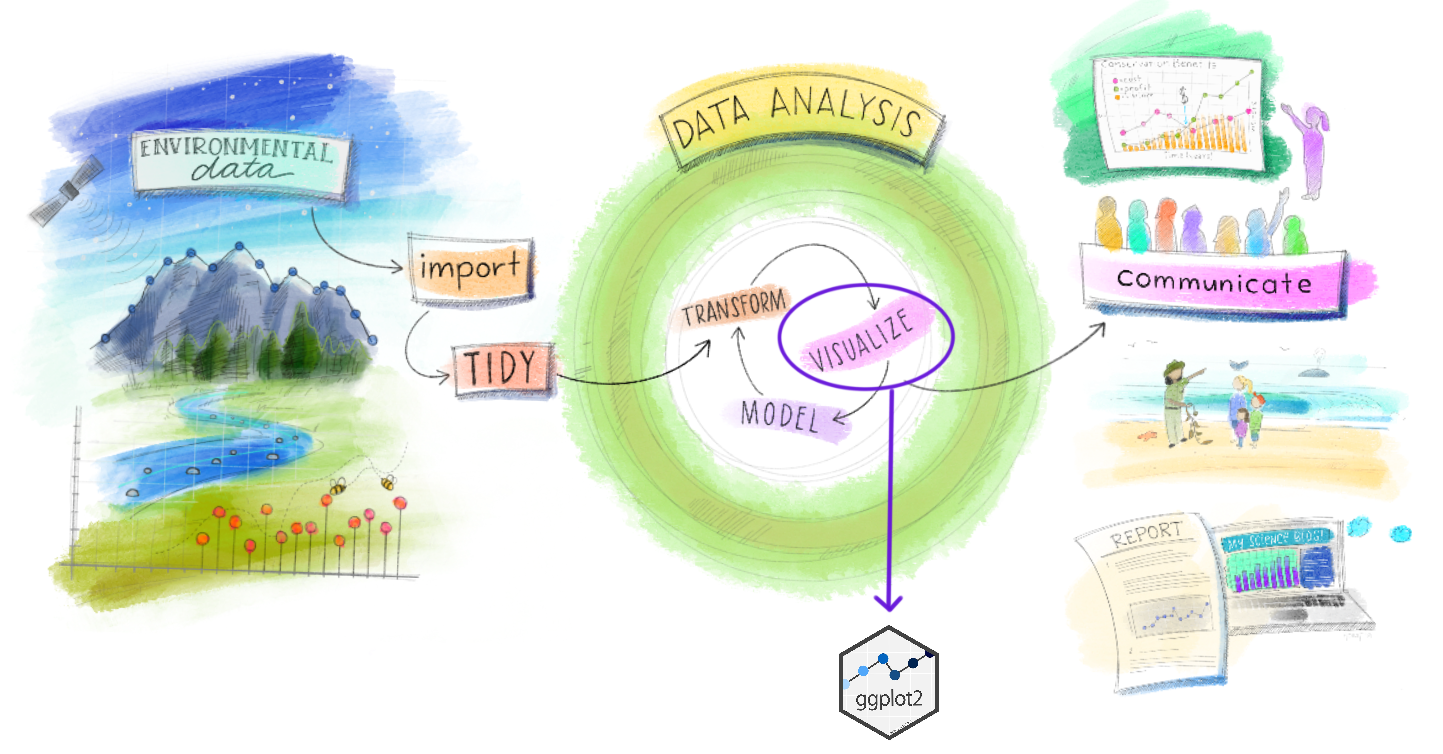 ENVIRONMENTAL
data
import
TIDY
DATA ANALYSIS
TRANSFORM
VISUALIZE
MODEL
ggplot2
Conservation Benefits
cost
profit
$
Time (years)
communicate
REPORT
MY SCIENCE BLOG!